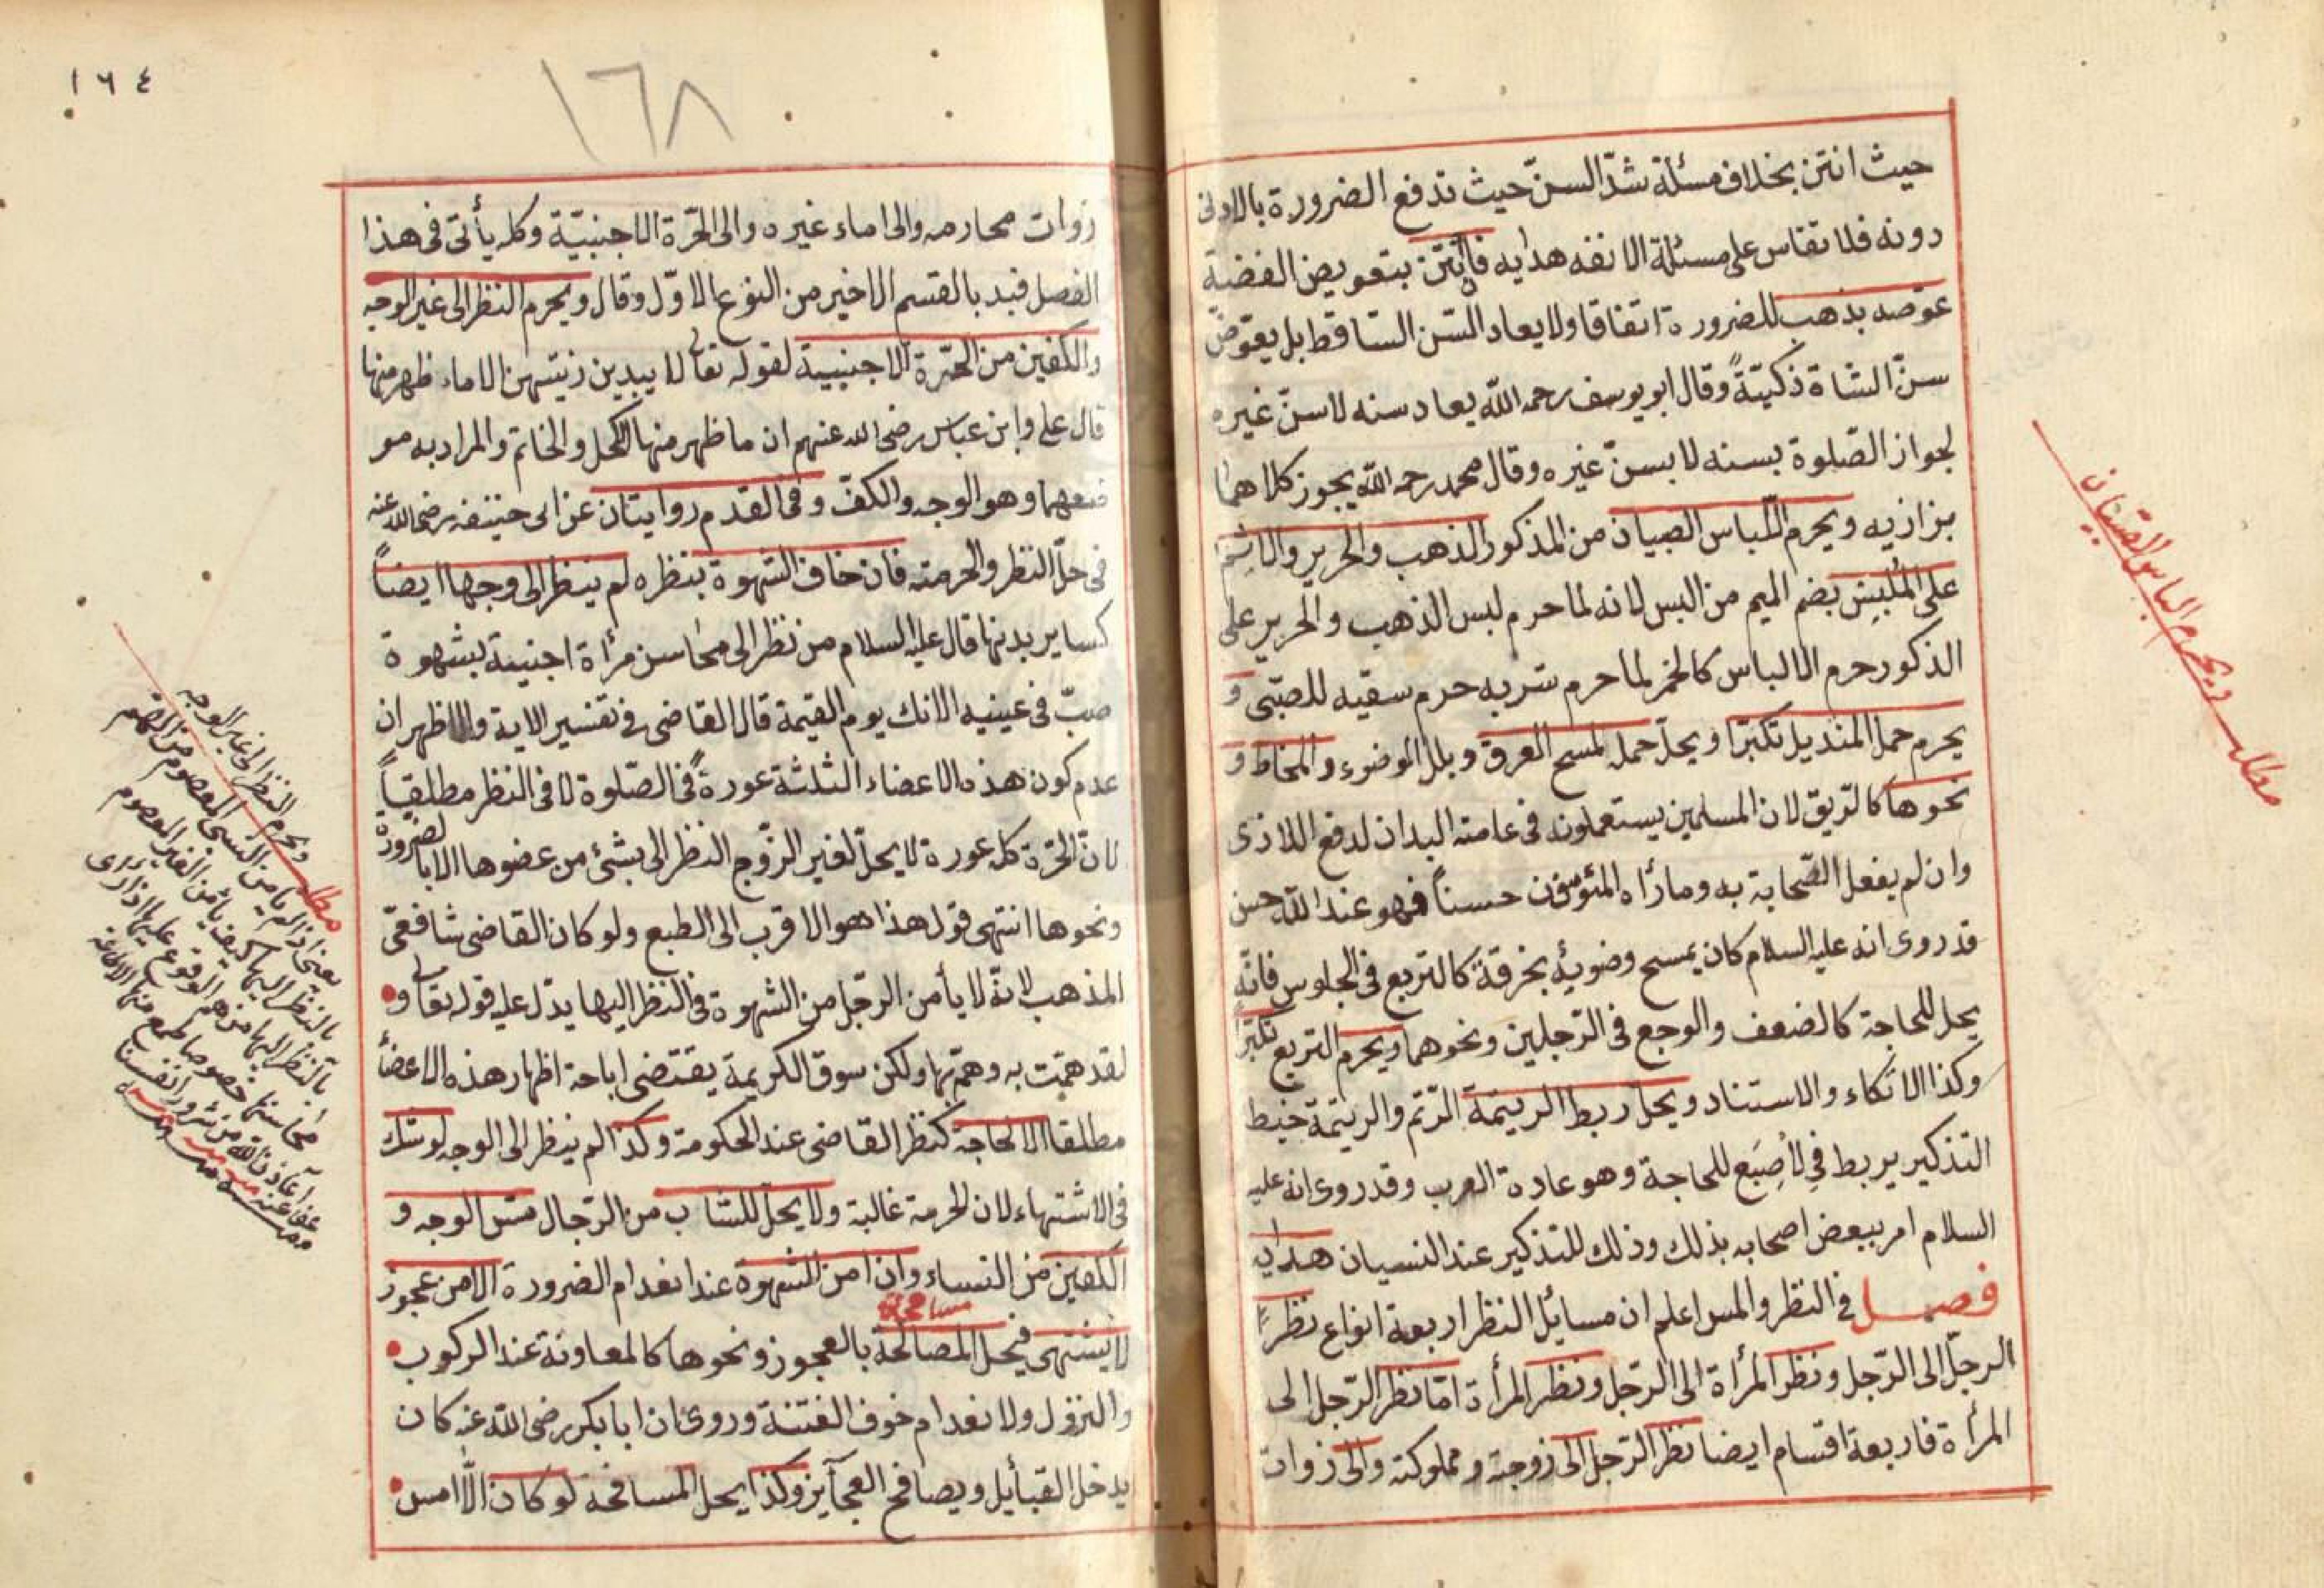 حيث انتن بخلاف مسئلة شدّ السنّ حيث تدفع الضرورة بالادنى
دونه فلا تقاس على مسئلة الانفه هدايه فأنتن بتعويض الفضية
عوضه بذهب للضرورة اتفاقا ولا يعاد السّن الساقط بل يعوّض
سنّ الشاة ذكيّةً وقال ابو يوسف رحمه الله يعاد سنه لا سنّ غيره
لجواز الصّلوة بسنه لا بسنّ غيره وقال محمد رحمه الله يجوز كلاهما
بزازيه ويحرم الباس الصبيان من المذكور الذهب والحرير والاثم
على الملبِس بضم الميم من البس لانه لما حرم لبس الذهب والحرير على
الذكور حرم الالباس كالخمر لما حرم شربه حرم سقيه للصبّى و
يحرم حمل المنديل تكبّرا ويحلّ حمله لمسح العرق وبلل الوضوء والمخاط و
نحوها كالرّيق لان المسلمين يستعملونه فى عامته البدان لدفع اللاذى
وان لم يفعل الصّحابة به وما رأاه المئومنون حسناً فهو عند الله حسن
قد روى انه عليه السلام كان يمسح وضويه بخرقة كالتربع فى الجلوس فانّه
يحل للحاجة كالضعف والوجع فى الرّجلين ونحوهما ويحرم التربع تكبّرً
وكذا الاتكاء والاستناد ويحل ربط الريتمة الرّتم والريتمة خيط
التذكير يربط فى لأصبَع للحاجة وهو عادة العرب وقد روى انه عليه
السلام امر ببعض اصحابه بذلك وذلك للتذكير عند النسيان هدايه
فصل فى النظر والمس اعلم ان مسائل النظر اربعة انواع نظرً
الرجل الى الرّجل ونظر المرأة الى الرّجل ونظر المرأة امّا نظر الرّجل الى
المرأة فاربعة اقسام ايضا نظر الرّجل الى زوجته ومملوكته والى زوات
مطلب ويحرم الباس الصبيان
١٦٤
١٦٨
زوات محارمه والى اماء غيره والى الحّرة الاجنبيّة وكله يأتى فى هذا
الفصل فبد بالقسم الاخير من النوع الاوّل وقال ويحرم النظر الى غير الوجه
والكفين من الحّرة الاجنبيية لقوله تعالى لا يبدين زينتهن الا ما ظهر منها
قال على وابن عباس رضى الله عنهم ان ما ظهر منها الكحل والخاتم والمراد به مو
ضعهما وهو الوجه والكفّ وفى القدم روايتان عن ابى حنيفه رضى الله عنه
فى حلّ النظر والحرمته فان خاف الشهوة بنظره لم ينظر الى وجهها ايضاً
كساير بدنها قال عليه السلام من نظر الى محاسن مرأة اجنبية بشهوة
صبّ فى عينيه الانك يوم القيمة قال القاضى فى تفسير الاية والاظهر ان
عدم كون هذه الاعضاء الثلثة عورةً فى الصّلوة لا فى النظر مطلقياً
لانّ الحّرة كله عورة لا يحلّ لغير الزّوج النظر الى بشئ من عضوها الا بالضرورة
ونحوها انتهى قول هذا هو الاقرب الى الطبع ولو كان القاضى شافعىّ
المذهب لانّه لا يأمن الرّجل من الشهوة فى النظر اليها يدّل عليه قوله تعالى و
لقد همّت به وهمّ بها ولكن سوق الكريمة يقتضى اباحة اظهار هذه الاعضأ
مطلقا الا لحاجة كنظر القاضى عند الحكومة وكذا لم ينظر الى الوجه لو شك
فى الاشتهاء لان لحرمة غالبة ولا يحلّ للشاب من الرّجال مسّ الوجه و
الكفين من النساء وان امن الشهوة عند انعدام الضرورة الا من عجوز
مسافحة
لا يشتهى فيحل المصالحة بالعجوز ونحوها كالمعاونة عند الركوب
والنزول ولا نعدام خوف الفتنة وروى ان ابا بكر رضى الله عنه كان
يدخل القبأيل ويصافح العجآيز وكذا يحل المسافحة لو كان الّا امس
مطلب ويحرم النظر الى غير الوجه